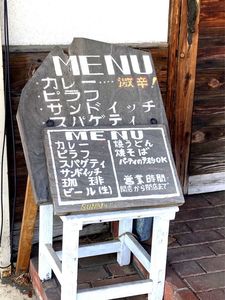 MENU
カレー 激辛!
ピラフ
サンドイッチ
スパゲティ
MENU
カレー
ピラフ
スパゲティ
サンドイッチ
珈琲
ビール(生)
焼うどん
焼そば
営業時間
開店から閉店まで